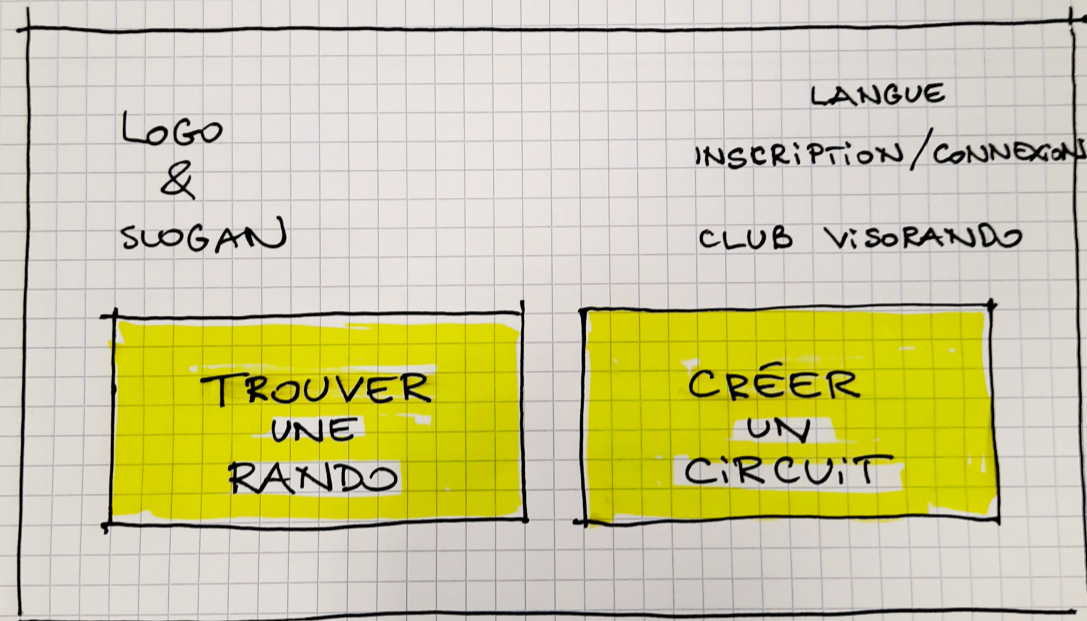 LOGO
&
SLOGAN
LANGUE
INSCRIPTION/CONNEXIONS
CLUB VISORANDO
TROUVER
UNE
RANDO
CRÉER
UN
CIRCUIT